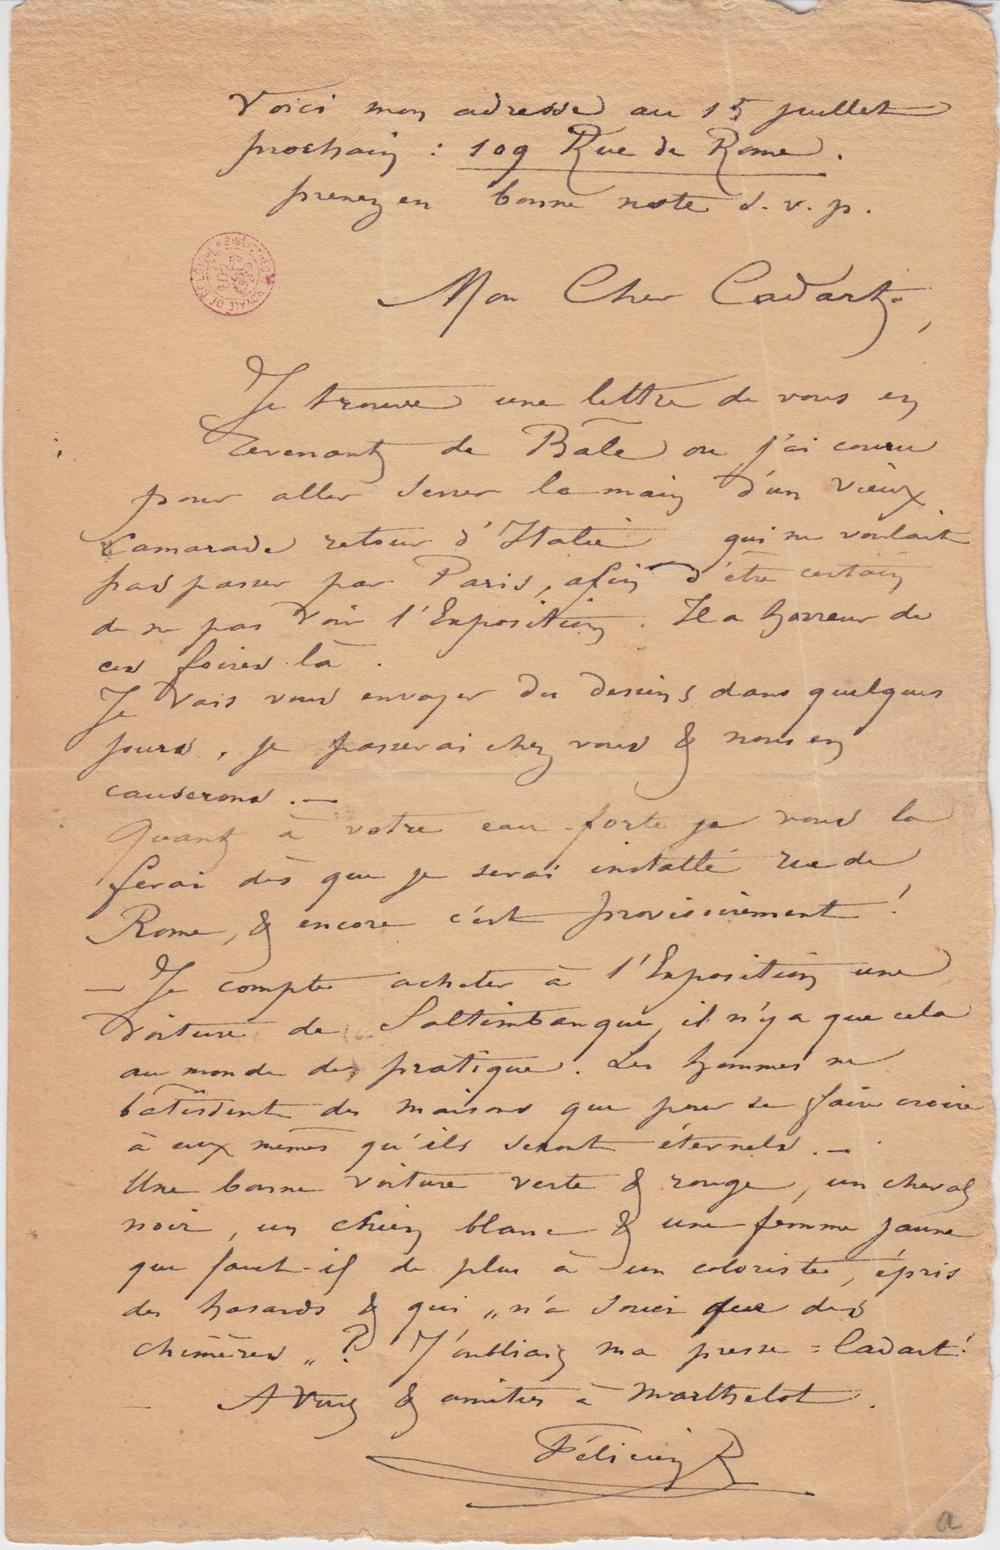 Voici mon adresse au 15 juillet
prochain : 109 Rue de Rome.
prenez en bonne note s.v.p.
Mon Cher Cadart,
Je trouve une lettre de vous en
revenant de Bâle ou j'ai couru
pour aller serrer la main d'un vieux
Camarade retour d'Italie qui ne voulait
pas passer par Paris, afin d'être certain
de ne pas voir l'Exposition. Il a horreur de
ces foires là.
Je vais vous envoyer des dessins dans quelques
jours, je passerai chez vous & nous en
causerons. —
Quant à votre eau-forte je vous la
ferai dès que je serai installé rue de
Rome, & encore c'est provisoirement !
— Je compte acheter à l'Exposition une
voiture de Saltimbanque, il n'y a que cela
au monde de pratique. Les hommes ne
bâtissent des maisons que pour se faire croire
à eux mêmes qu'ils seront éternels. —
Une bonne voiture verte & rouge, un cheval
noir, un chien blanc & une femme jaune
que faut-il de plus à un coloriste, épris
des hasards & qui „n'a souci que des
chimères„ ? J'oubliais ma presse = Cadart !
A Vous & amitiés à Marthelot.
Félicien R
a